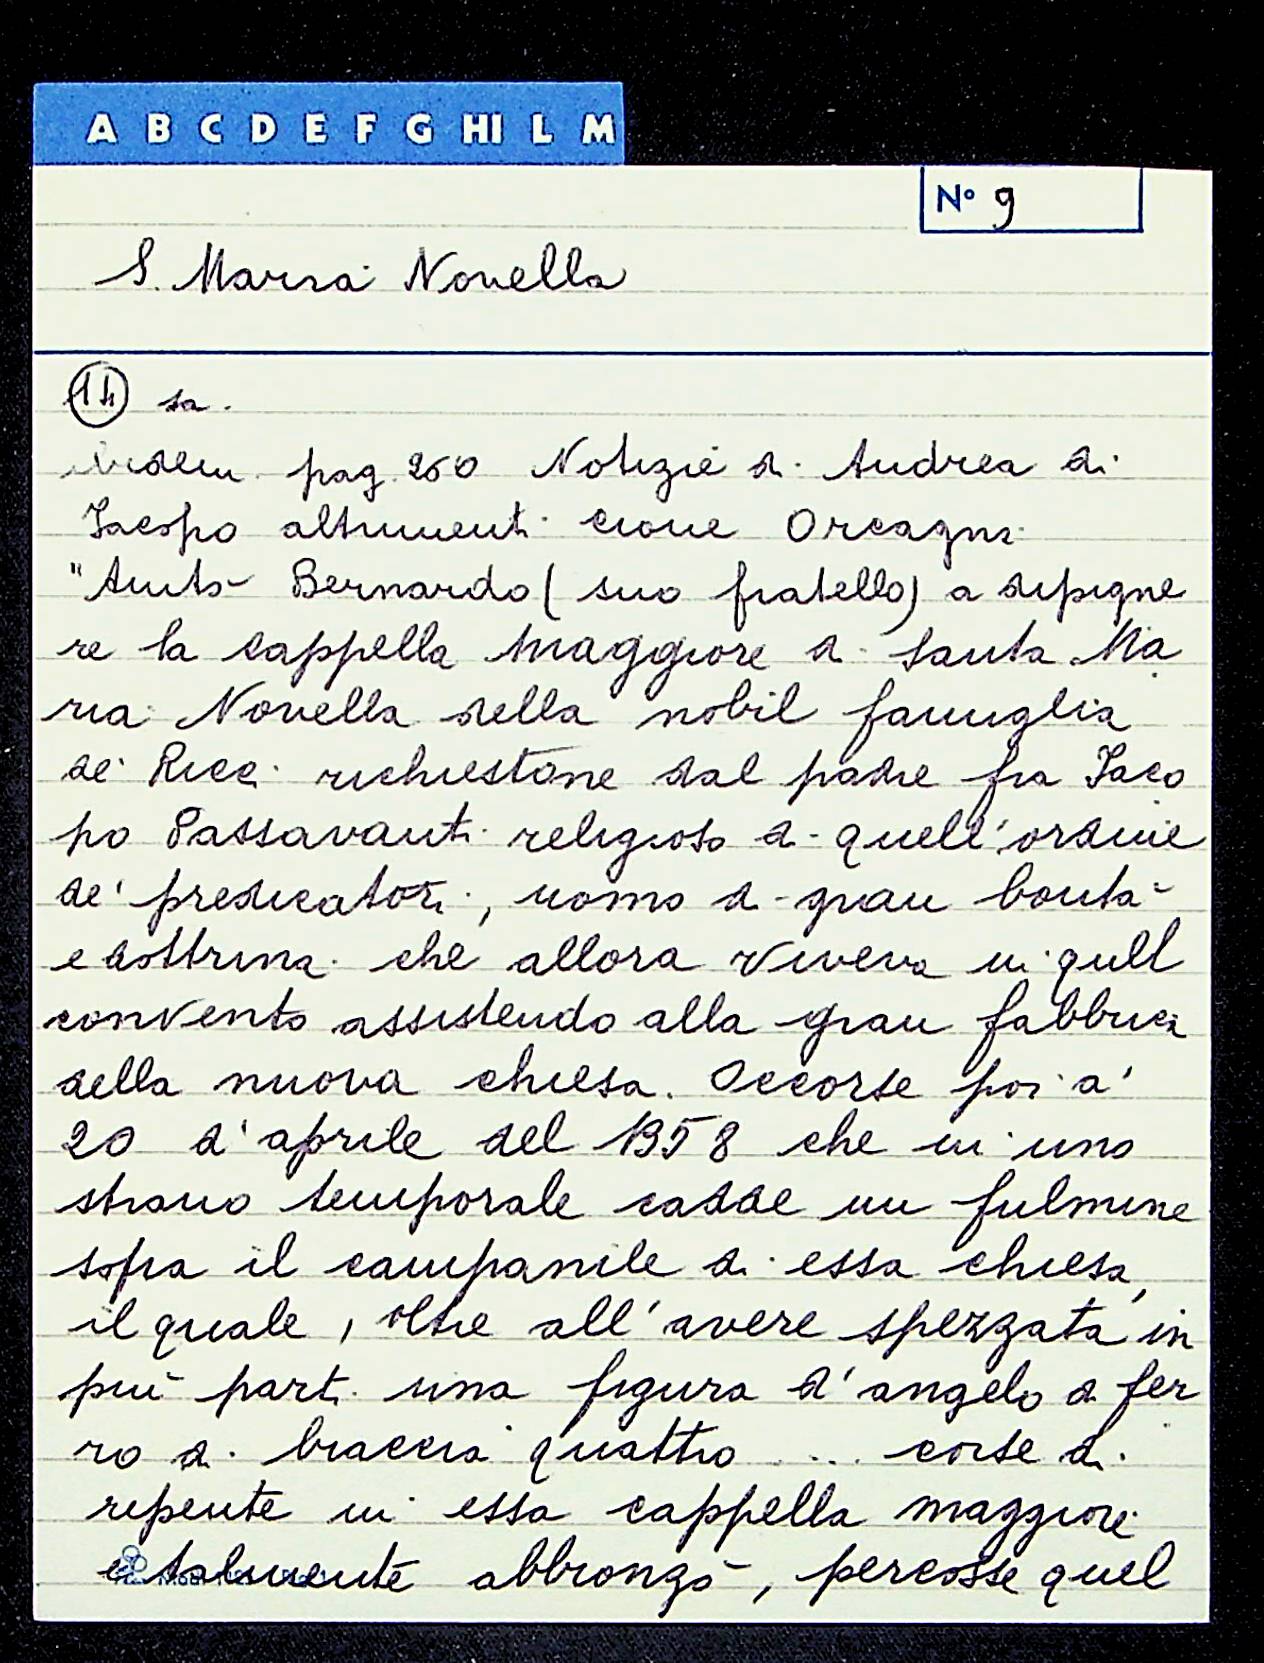 A B C D E F G HI L M
N° 9
S. Maria Novella
14 sa.
ibidem pag. 260 Notizie di Andrea di
Jacopo altrimenti cione Orcagni
"Aiutò Bernardo (suo fratello) a dipigne
re la cappella maggiore di Santa Ma
ria Novella della nobil famiglia
de' Ricci richiestone dal padre fra Jaco
po Passavanti religioso di quell'ordine
de' predicatori, uomo di gran bontà
e dottrina che allora viveva in quell
convento assistendo alla gran fabbrica
della nuova chiesa. Occorse poi a'
20 d'aprile del 1358 che in uno
strano temporale cadde un fulmine
sopra il campanile di essa chiesa,
il quale, oltre all'avere spezzata in
più parti una figura d'angelo di fer
ro di braccia quattro ... corse di
repente in essa cappella maggiore
e talmente abbronzò, percosse quel